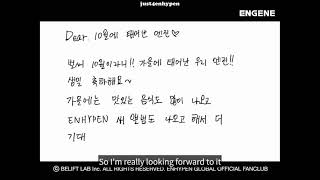 just4enhypen
ENGENE
Dear. 10월에 태어난 엔진♡
벌써 10월이라니!! 가을에 태어난 우리 엔진!!
생일 축하해요~
가을에는 맛있는 음식도 많이 나오고
ENHYPEN 새 앨범도 나오고 해서 더
기대
So I'm really looking forward to it
© BELIFT LAB Inc. ALL RIGHTS RESERVED. ENHYPEN GLOBAL OFFICIAL FANCLUB